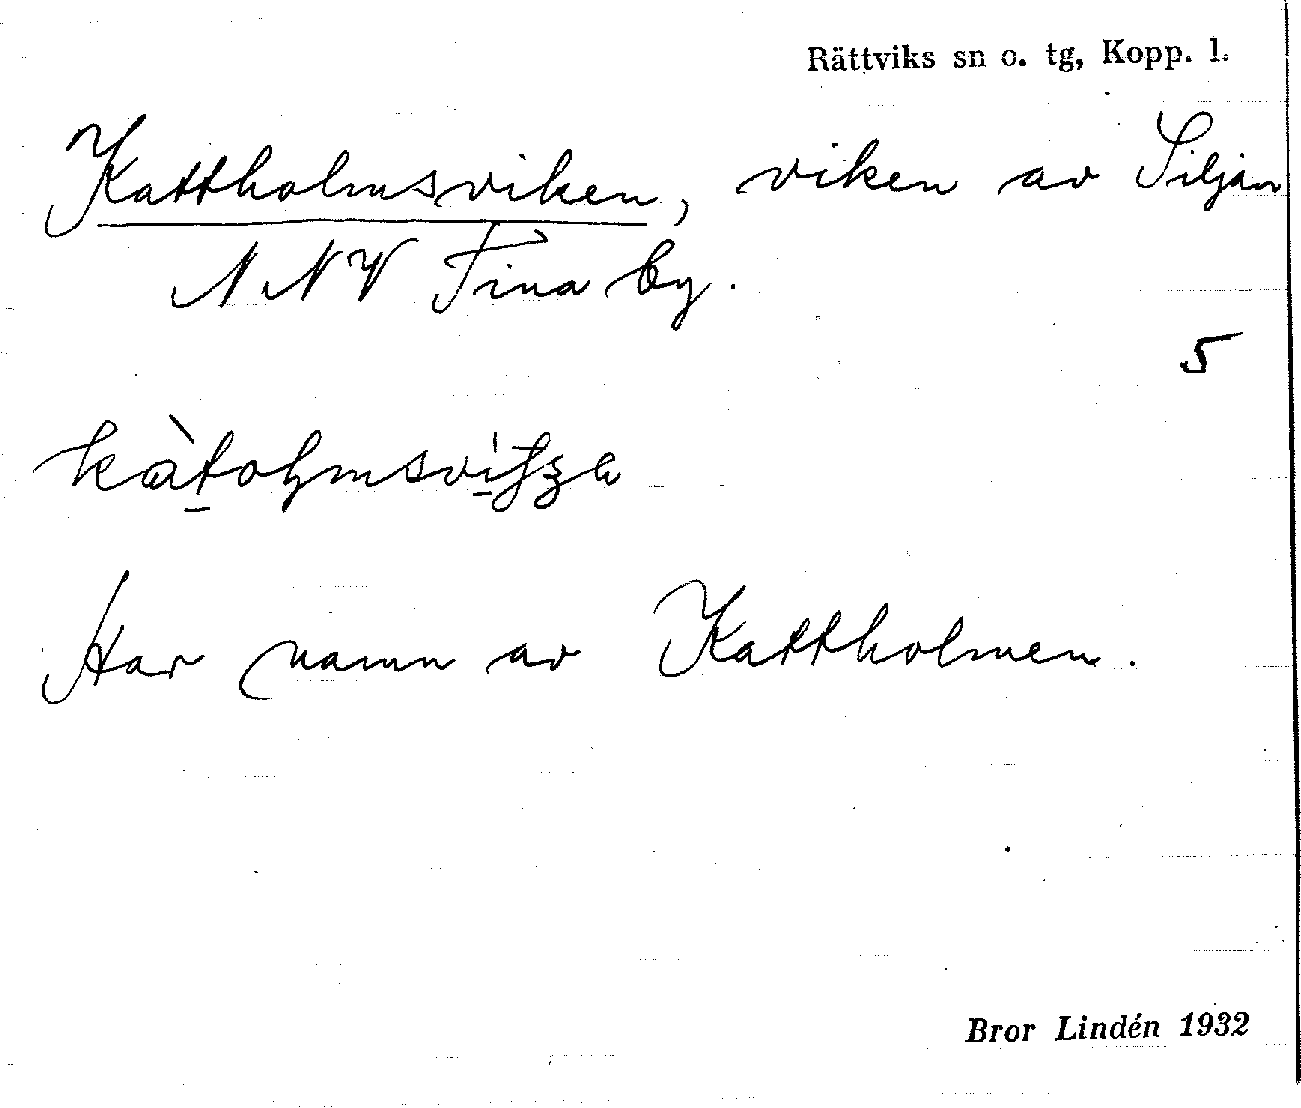 Rättviks sn o. tg, Kopp. l.
Kattholmsviken, viken av Siljan
NNV Fina by.
5
Har namn av Kattholmen.
Bror Lindén 1932